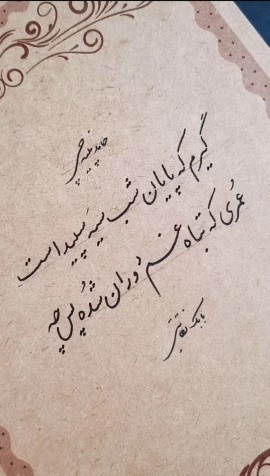 گیرم که پایان شب سیه سپید است
عمری که تباه غم دوران شده پس چه